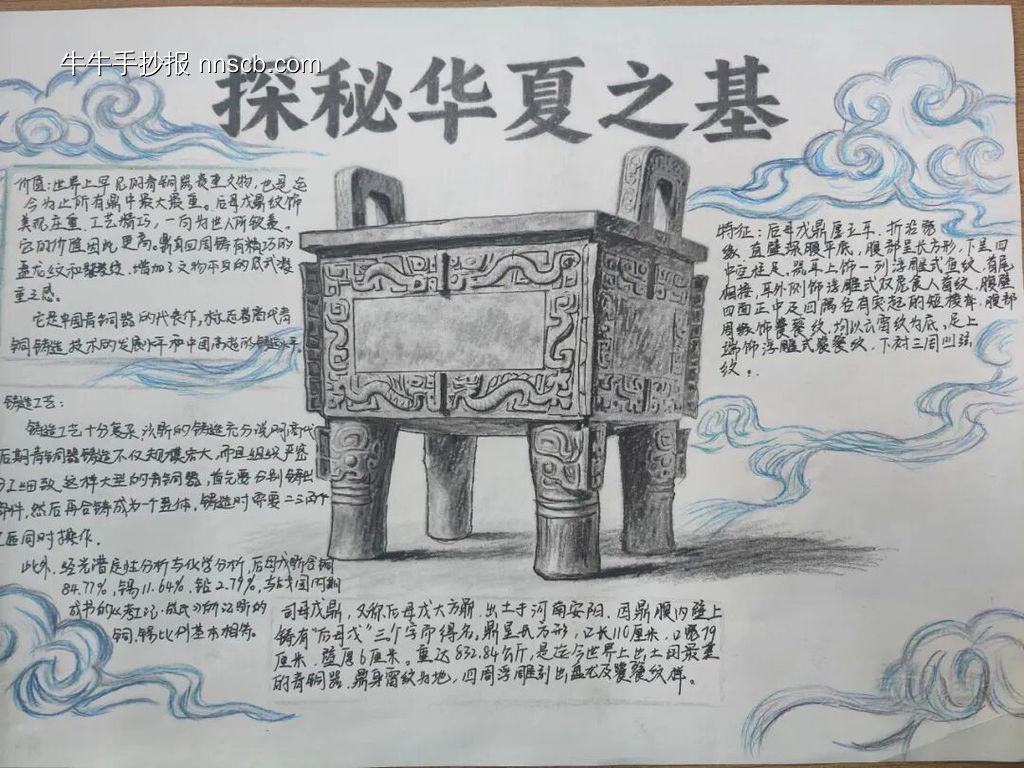 牛牛手抄报 nnscb.com
探秘华夏之基
价值:世界上罕见的青铜器贵重文物,也是迄
今为止所有鼎中最大最重。后母戊鼎纹饰
美观庄重、工艺精巧,一向为世人所钦羡。
它的价值因此更高。鼎身四周铸有精巧的
盘龙纹和饕餮纹,增加了文物本身的威武凝
重之感。
它是中国青铜器的代表作,标志着商代青
铜铸造技术的发展水平和中国高超的铸造水平。
特征:后母戊鼎厚立耳,折沿宽
缘,直壁深腹平底,腹部呈长方形,下呈四
中空柱足。器耳上饰一列浮雕式鱼纹,首尾
相接,耳外侧饰浮雕式双虎食人首纹,腹壁
四面正中及四隅各有突起的短棱脊,腹部
周缘饰饕餮纹,均以云雷纹为底。足上
端饰浮雕式饕餮纹,下衬三周凹弦
纹。
铸造工艺:
铸造工艺十分复杂,
后期青铜器铸造不仅规模宏大,而且组织严密
分工细致,这样大型的青铜器,首先要分别铸出
零件,然后再合铸成为一个整体,铸造时需要二三百个
工匠同时操作。
此外,经光谱定性分析与化学分析,后母戊鼎含铜
84.77%、锡11.64%、铅2.79%,与战国时期
成书的《考工记·
铜、锡比例基本相符。
司母戊鼎,又称后母戊大方鼎,出土于河南安阳,因鼎腹内壁上
铸有“后母戊”三个字而得名。鼎呈长方形,口长110厘米、口宽79
厘米、壁厚6厘米。重达832.84公斤,是迄今世界上出土的最重
的青铜器,鼎身雷纹为地,四周浮雕刻出盘龙及饕餮纹样。